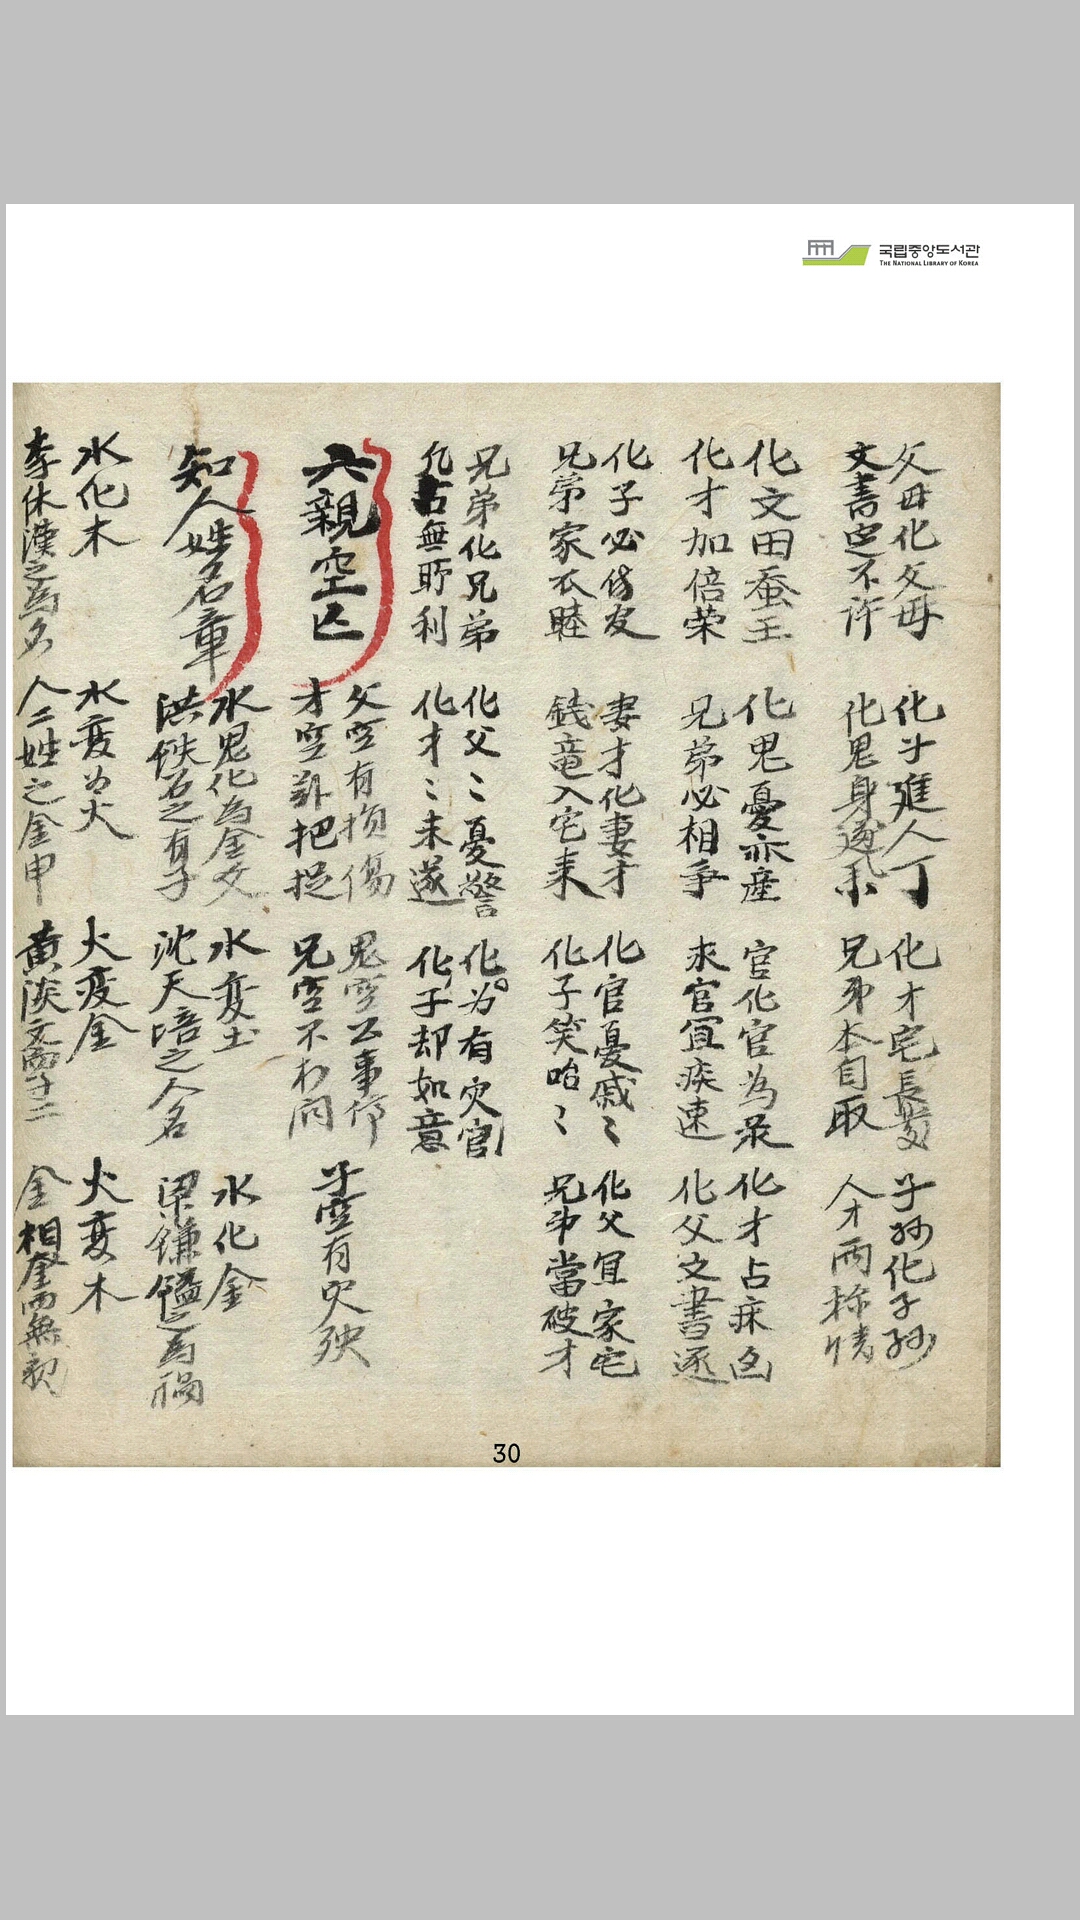 국립중앙도서관
THE NATIONAL LIBRARY OF KOREA
父母化父母 化子進人丁 化才宅長 子孫化子孫
文書定不許 化鬼身 兄弟本自取 人才兩称情
化文田蚕王 化鬼憂亦産 官化官為 化才占病凶
化才加倍荣 兄弟必相爭 求官宜疾速 化父文書逐
化子必 友 妻才化妻才 化官憂戚〻 化父宜家宅
兄弟家不睦 錢竜入宅来 化子笑哈〻 兄弟當破才
兄弟化兄弟 化父〻憂警 化 有灾官
凡占無所利 化才〻未遂 化子却如意
六親空亡
父空有損傷 鬼空公事停 子空有灾殃
才空 把捉 兄空不 問
知人姓名章
水鬼化為金文 水変土 水化金
洪鉄石之有子 沈天培之人名 梁鎌
水化木 水変為火 火変金 火変木
李休漢之為名 人二姓之金申 黄 文 十二 金相奎 無
30